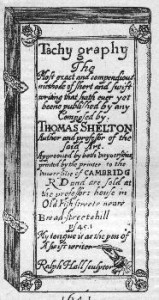 Tachy graphy
The
Most exact and compendious
methode of short and swift
writing that hath ever yet
beene published by any
Composed by
THOMAS SHELTON
Author and professor of the
said Art.
Approoved by both Unyversities
printed by the printer to the
Universitie of CAMBRIDG
and are sold at
the professors house in
Old Fishstreete neare
Bread-streete hill
1641.
My tongue is as the pen of
A swift writer
Ralph Hall sculptor
1641